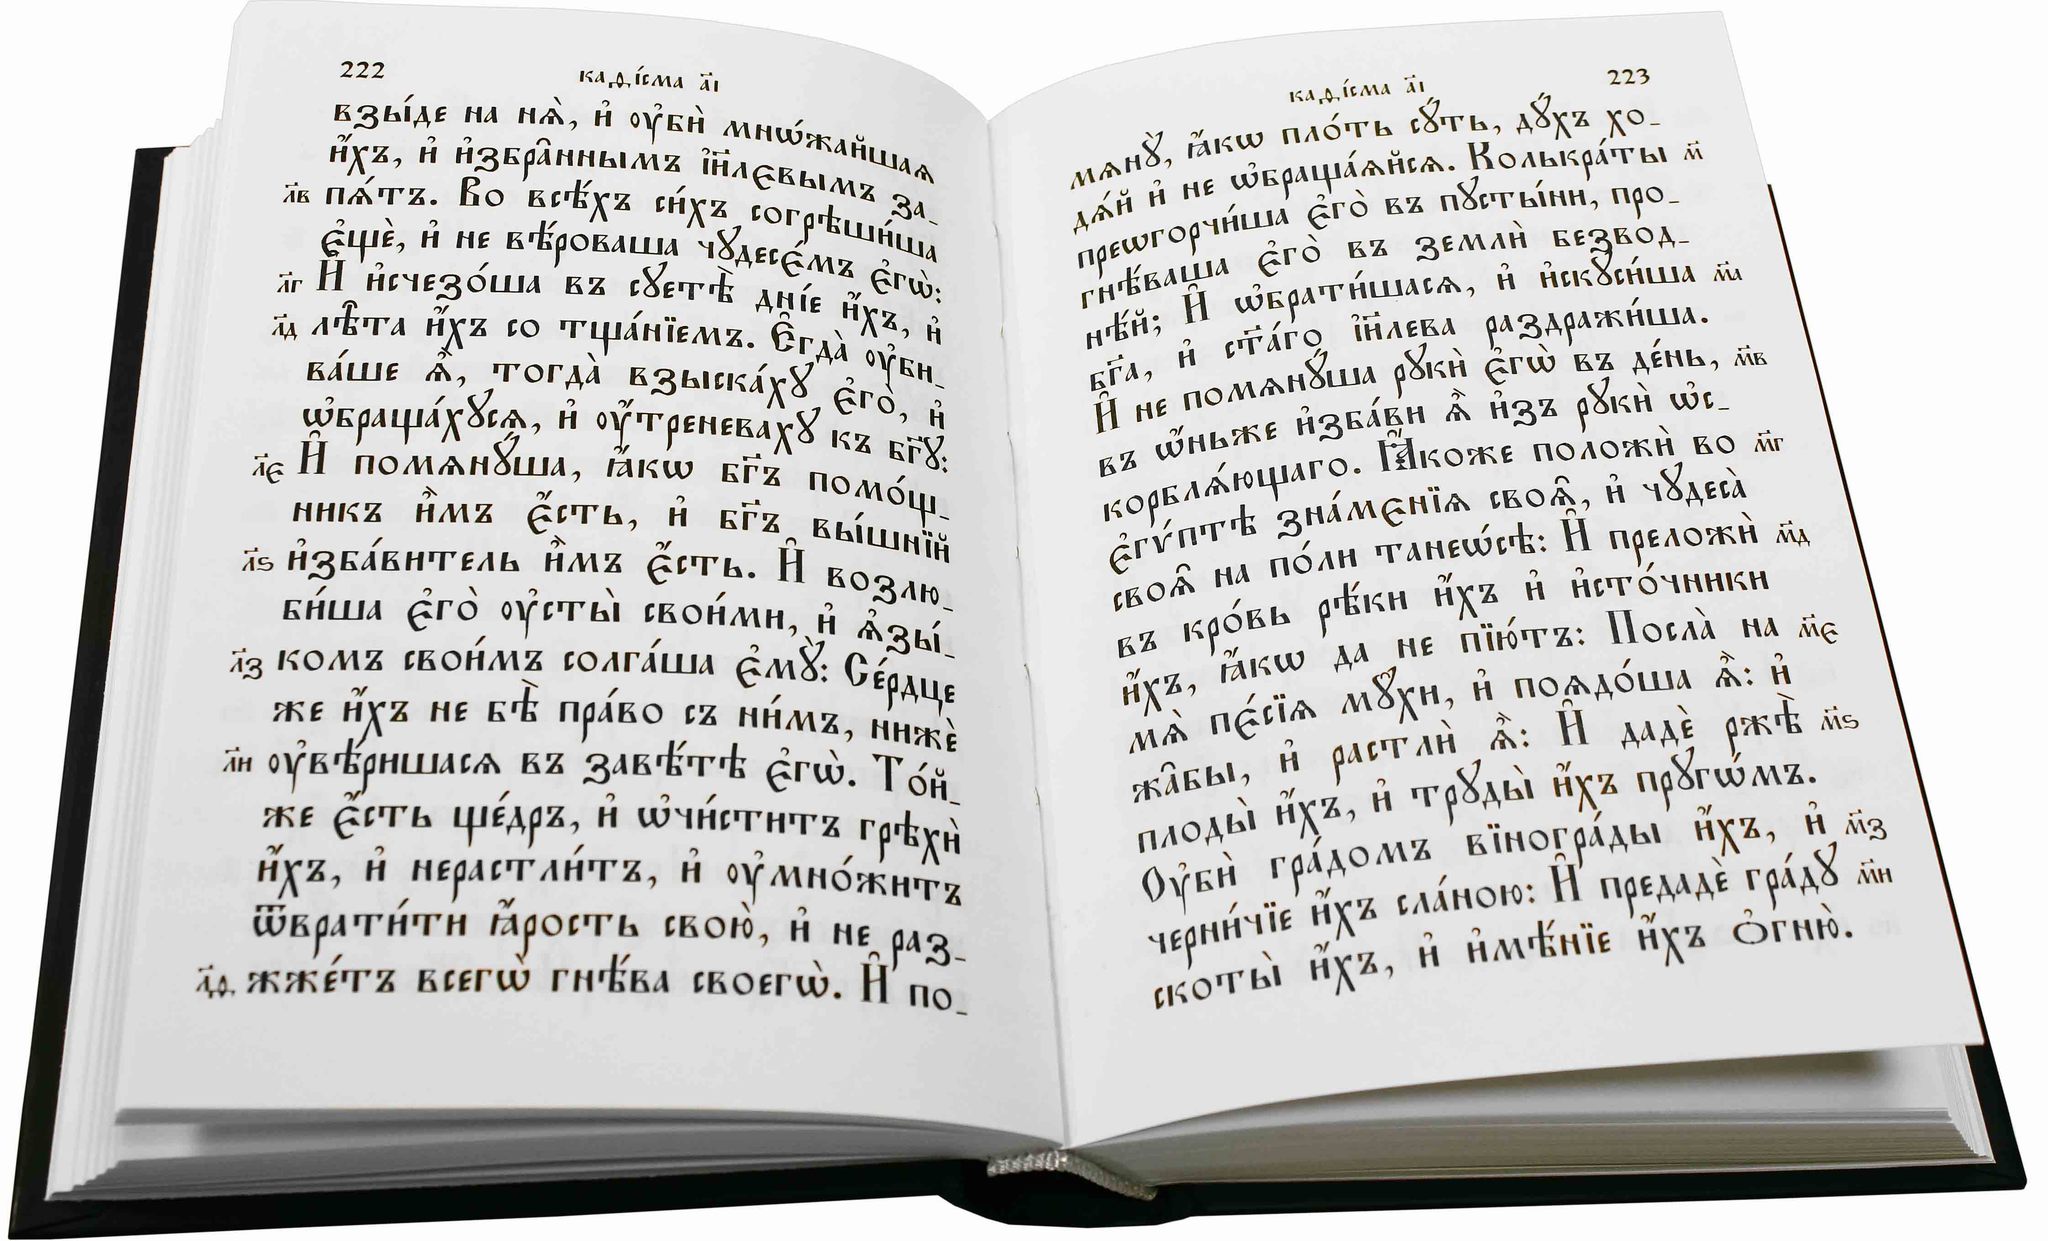 222
каѳі́сма а҃і
взы́де на нѧ̀, и҆ ᲂу҆бѝ мнѡ́жайшаѧ
и҆́хъ, и҆ и҆збра̑ннымъ і҆и҃лєвымъ за_
л҃в пѧ́тъ. Во всѣ́хъ си́хъ согрѣши́ша
є҆щѐ, и҆ не вѣ́роваша чꙋдесє́мъ є҆гѡ̀:
л҃г И҆ и҆счезо́ша въ сꙋетѣ̀ дні́е и҆́хъ, и҆
л҃д лѣ̑та и҆́хъ со тща́нїемъ. Є҆гда̀ ᲂу҆би_
ва́ше ѧ҆̀, тогда̀ взыска́хꙋ є҆го̀, и҆
ѡ҆браща́хꙋсѧ, и҆ ᲂу҆́треневахꙋ къ бг҃ꙋ:
л҃є И҆ помѧнꙋ́ша, ꙗ҆́кѡ бг҃ъ помо́щ_
никъ и҆̀мъ є҆́сть, и҆ бг҃ъ вы́шнїй
л҃ѕ и҆зба́витель и҆̀мъ є҆́сть. И҆ возлю_
би́ша є҆го̀ ᲂу҆сты̀ свои́ми, и҆ ѧ҆зы́_
л҃з комъ свои́мъ солга́ша є҆мꙋ̀: Се́рдце
же и҆́хъ не бѣ̀ пра́во съ ни́мъ, нижѐ
л҃и ᲂу҆вѣ́ришасѧ въ завѣ́тѣ є҆гѡ̀. То́й_
же є҆́сть ще́дръ, и҆ ѡ҆чи́ститъ грѣхѝ
и҆́хъ, и҆ нерастли́тъ, и҆ ᲂу҆мно́житъ
ѿврати́ти ꙗ҆́рость свою̀, и҆ не раз_
л҃ѳ жже́тъ всегѡ̀ гнѣ́ва своегѡ̀. И҆ по_
каѳі́сма а҃і
223
мѧнꙋ̀, ꙗ҆́кѡ пло́ть сꙋ́ть, дꙋ́хъ хо_
дѧ́й и҆ не ѡ҆браща́ѧйсѧ. Колькра́ты м҃
преѡгорчи́ша є҆го̀ въ пꙋсты́ни, про_
гнѣ́ваша є҆го̀ въ землѝ безвод_
нѣ́й; И҆ ѡ҆брати́шасѧ, и҆ и҆скꙋси́ша м҃а
бг҃а, и҆ ст҃а́го і҆и҃лева раздражи́ша.
И҆ не помѧнꙋ́ша рꙋкѝ є҆гѡ̀ въ де́нь, м҃в
въ ѡ҆́ньже и҆зба́ви ѧ҆̀ и҆зъ рꙋкѝ ѡ҆с_
корблѧ́ющаго. Ꙗ҆́коже положѝ во м҃г
є҆гѵ́птѣ зна́мєнїѧ своѧ̑, и҆ чꙋдеса̀
своѧ̑ на по́ли танеѡ́сѣ: И҆ преложѝ м҃д
въ кро́вь рѣ́ки и҆́хъ и҆ и҆сто́чники
и҆́хъ, ꙗ҆́кѡ да не пїю́тъ: Посла̀ на м҃є
мѧ̀ пє́сїѧ мꙋ̑хи, и҆ поѧдо́ша ѧ҆̀: и҆
жа̑бы, и҆ растлѝ ѧ҆̀: И҆ дадѐ ржѣ̀ м҃ѕ
плоды̀ и҆́хъ, и҆ трꙋды̀ и҆́хъ прꙋгѡ́мъ.
Оу҆бѝ гра́домъ вїногра́ды и҆́хъ, и҆ м҃з
черни́чїе и҆́хъ сла́ною: И҆ предадѐ гра́дꙋ м҃и
скоты̀ и҆́хъ, и҆ и҆мѣ́нїе и҆́хъ ѻ҆гню̀.